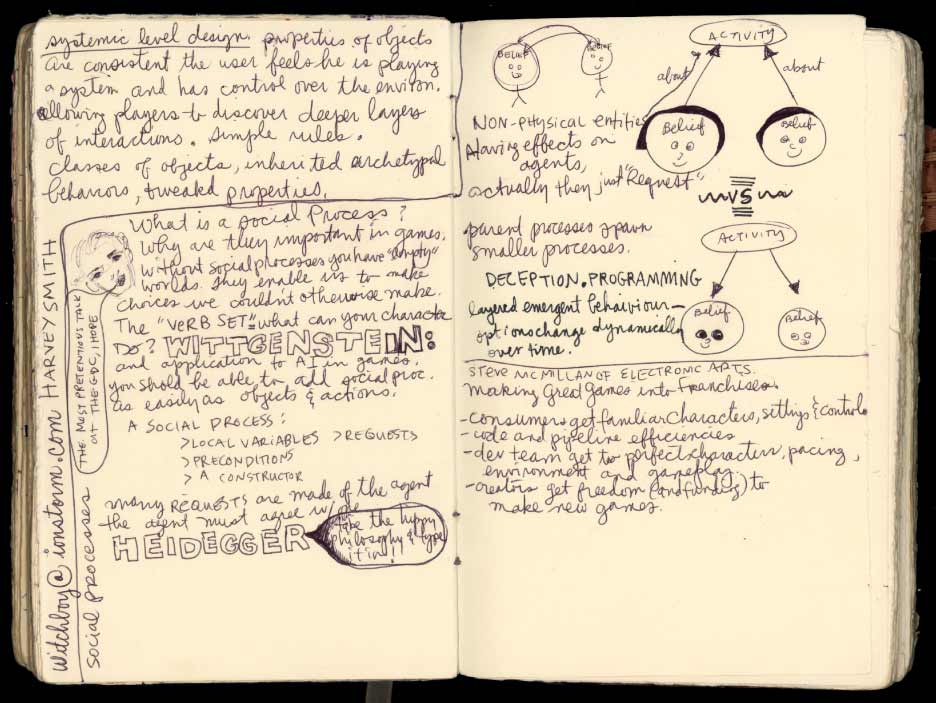 systemic level design. properties of objects
are consistent the user feels he is playing
a system and has control over the environ.
allowing players to discover deeper layers
of interactions. simple rules.
classes of objects, inherited archetypal
behaviors, tweaked properties.
witchboy@ionstorm.com HARVEY SMITH
SOCIAL PROCESSES
THE MOST PRETENTIOUS TALK
at THE GDC, I HOPE
What is a social Process?
Why are they important in games.
without social processes you have "empty"
worlds. they enable us to make
choices we couldn't otherwise make.
The "VERB SET" = what can your character
DO? WITTGENSTEIN:
and application to AI in games.
you shold be able to add social proc.
as easily as objects & actions.
A SOCIAL PROCESS:
>LOCAL VARIABLES >REQUESTS
>PRECONDITIONS
>A CONSTRUCTOR
many REQUESTS are made of the agent
the agent must agree w/
HEIDEGGER
take the hippy
philosophy & type
it in!!
BELIEF
BELIEF
ACTIVITY
about
about
Belief
Belief
NON-PHYSICAL entities
Having effects on
agents,
actually they just "Request"
VS
parent processes spawn
smaller processes.
ACTIVITY
Belief
Belief
DECEPTION.PROGRAMMING
layered emergent behaiviour—
options change dynamically
over time.
STEVE MCMILLAN OF ELECTRONIC ARTS.
Making Great Games into franchises.
-consumers get familiar characters, sittings & controls
-code and pipeline efficiencies
-dev team get to perfect characters, pacing,
environment and gameplay.
-creators get freedom (and funding) to
make new games.